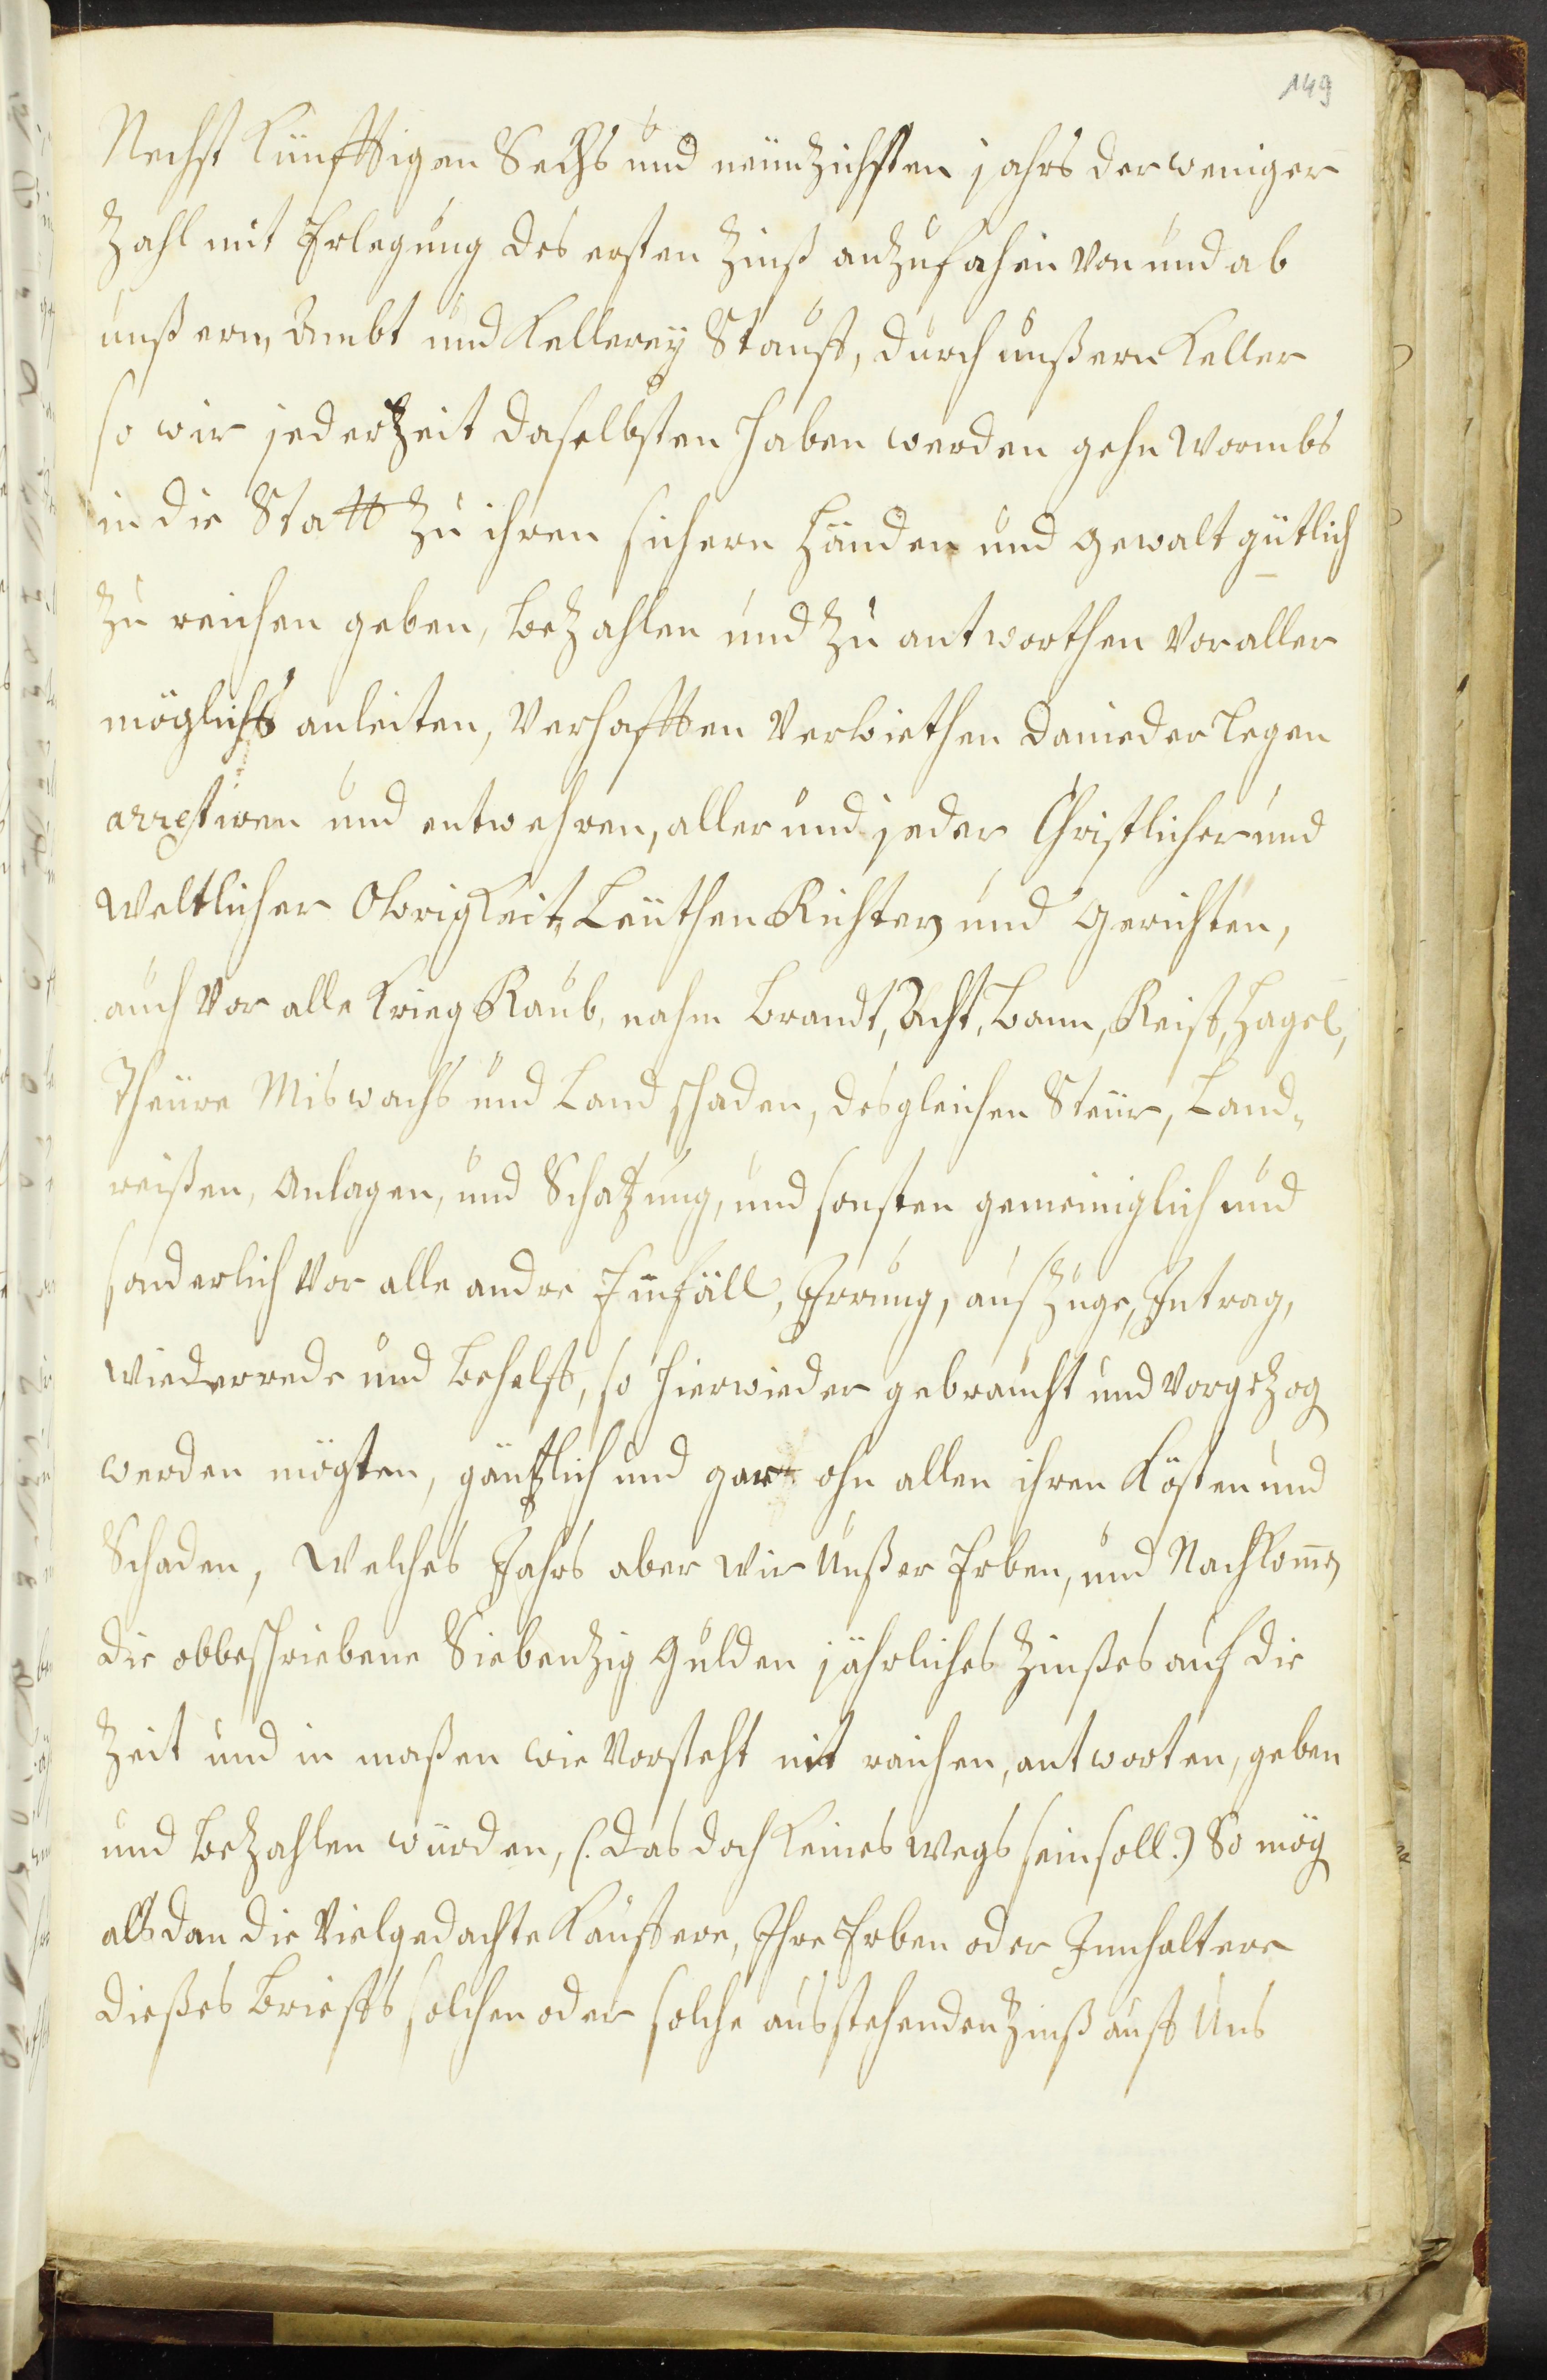 149
Nechst künfftigen Sechs und neunzichsten jahrs der weniger
Zahl mit Erlegung des ersten Zinß anzufahen von und ab
unßerm Ambt und Kellerey Stauff, durch unßern Keller
so wir jederzeit daselbsten haben werden gehn Wormbs
in die Statt zu ihren sichern Händen und gewalt gütlich
zu reichen geben, bezahlen und zu antworthen vor aller
möglichs anleiten, verhafften verbiethen danieder legen
arrestiren und entwehren, aller und jeder Christlicher und
Weltlicher Obrigkeit, Leüthen Richtern und Gerichten,
auch vor alle Krieg Raub, nahm Brandt, Acht, Bann, Reiff, Hagel,
Theüre Miswachs und Land schaden, desgleichen Steür, Land-
reißen, Anlagen, und Schatzung, und sonsten gemeiniglich und
sonderlich vor alle andre Einfäll, Irrung, auszüge, Intrag,
wiederrede und behelff, so hierwieder gebraucht und vorgezog
werden mögten, gäntzlich und gar ohn allen ihren Kösten und
Schaden, Welches Jahrs aber wir Unßer Erben, und Nachkom̅en
die obbeschriebene Siebenzig Gulden jährliches Zinßes auf die
Zeit und in maßen wie vorsteht nit raichen, antworten, geben
und bezahlen würden, (: das doch keines wegs sein soll :) So mög
alßdan die vielgedachte Kauffere, Ihre Erben oder Innhaltere
dießes Brieffs solchen oder solche ausstehenden Zinß auff Uns